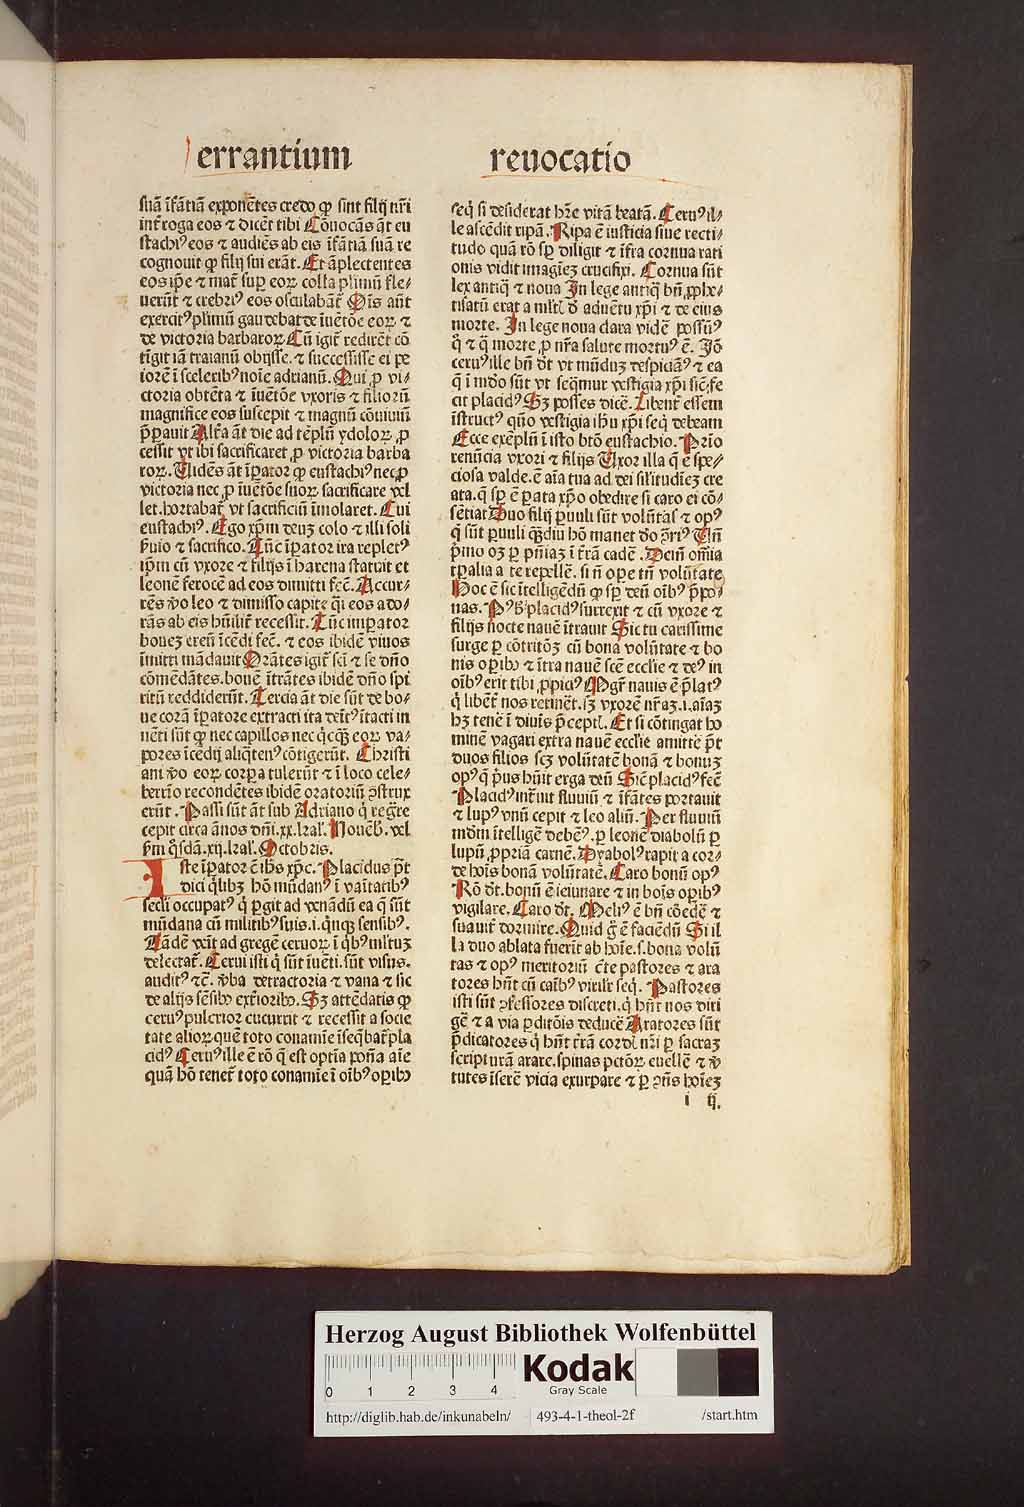 errantium
reuocatio
suā īfātiā exponētes credo ꝙ sint filij tui
int̄ roga eos ⁊ dicēt tibi Cōuocās āt eu
stachiꝰ eos ⁊ audiēs ab eis īfātiā suā re
cognouit ꝙ filij sui erāt. Et āplectentes
eos ip̄e ⁊ mat̄ sup̱ eoꝝ colla plīmū fle-
uerūt ⁊ crebriꝰ eos osculabāt̄ Oīs aūt
exercitꝰ plīmū gaudebat de īuētōe eoꝝ ⁊
de victoria barbaroꝝ Cū igit̄ redirēt cō
tigit iā traianū obijsse. ⁊ successisse ei pe
iorē ī sceleribꝰ noīe adrianū. Qui ꝓ vi-
ctoria obtēta ⁊ īuētōe vxoris ⁊ filiorū
magnifice eos suscepit ⁊ magnū cōuiuiū
p̄pauit Alt̄a āt die ad tēplū ydoloꝝ ꝓ
cessit vt ibi sacrificaret ꝓ victoria barba
roꝝ. Uidēs āt īꝑator ꝙ eustachiꝰ nec ꝓ
victoria nec ꝓ īuētōe suoꝝ sacrificare vel
let. hortabat̄ vt sacrificiū īmolaret. Cui
eustachiꝰ. Ego xp̄m deuȝ colo ⁊ illi soli
ẜuio ⁊ sacrifico. Tūc īꝑator ira repletꝰ
ip̄m cū vxore ⁊ filijs ī harena statuit et
leonē ferocē ad eos dimitti fec̄. Accur-
rēs v̄o leo ⁊ dimisso capite q̄i eos ado-
rās ab eis hūilit̄ recessit. Tūc imperator
bouez ereū īcēdi fec̄. ⁊ eos ibidē viuos
īmitti mādauit Orātes igit̄ sc̄i ⁊ se dn̄o
comēdātes. bouē ītrātes ibidē dn̄o spi
ritū reddiderūt. Tercia āt die sūt de bo-
ue corā īꝑatore extracti ita deīt̄ ītacti in
uēti sūt ꝙ nec capillos nec q̄cq̄ȝ eoꝝ va-
pores īcēdij aliq̄tenꝰ cōtigerūt. Christi
ani v̄o eoꝝ corꝑa tulerūt ⁊ ī loco cele-
berrīo recondētes ibidē oratoriū ꝯstrux
erūt. Passi sūt āt sub Adriano q̄ regr̄e
cepit circa ānos dn̄i.xx. kal̄. Nouēb̄. vel
ẜm q̄sdā.xij.kal̄. Octobris.
Iste īꝑator ē ih̄s xp̄c. Placidus p̄t
dici q̄libȝ hō mūdanꝰ ī vaītatibꝰ
sec̄li occupatꝰ q̄ ꝑgit ad venādū ea q̄ sūt
mūdana cū militibꝰ suis.i.q̄nqȝ sensibꝰ.
Tādē vēit ad gregē ceruoꝝ ī q̄bꝰ mltuȝ
delectat̄. Cerui isti q̄ sūt īuēti. sūt visus.
auditꝰ ⁊c̄. v̄ba detractoria ⁊ vana ⁊ sic
de alijs sēsibꝰ ext̄ioribꝰ. Sȝ attēdatis ꝙ
ceruꝰ pulcrior cucurrit ⁊ recessit a socie
tate alioꝝ quē toto conamie īseq̄bat̄ pla
cidꝰ Ceruꝰ ille ē rō q̄ est optīa poñā aīe
quā hō tenet̄ toto conamīe ī oībꝰ oꝑibꝰ
seq̄ si desiderat hr̄e vitā beatā. Ceruꝰ il-
le ascēdit ripā. Ripa ē iusticia siue recti-
tudo quā rō sp̱ diligit ⁊ īfra cornua rati
onis vidit imagīez crucifixi. Cornua sūt
lex antiq̄ ⁊ noua In lege antiq̄ bn̄ ꝓphe-
tisatū erat a mltl̄ d̄ aduētu xp̄i ⁊ de eius
morte. In lege noua clara vidē possūꝰ
q̄ ⁊ q̄ morte ꝓ nr̄a salute mortuꝰ ē. Iō
ceruꝰ ille bn̄ d̄t vt mūduȝ despiciā ⁊ ea
q̄ ī mūdo sūt vt seq̄mur vestigia xp̄i sic̄ fe
cit placidꝰ Sȝ posses dicē. Libent̄ essem
īstructꝰ qn̄o vestigia ih̄u xp̄i seq̄ debeam
Ecce exēplū ī isto bt̄o eustachio. Prīo
renūcia vxori ⁊ filijs Uxor illa q̄ ē spe-
ciosa valde. ē aīa tua ad dei sil̄itudīez cre
ata. q̄ sp̱ ē ꝑata xp̄o obedire si caro ei cō-
sētiat Duo filij ꝑuuli sūt volūtas ⁊ opꝰ
q̄ sūt ꝑuuli qȝdiu hō manet ī do p̄riꝰ Uñ
p̄mo oȝ ꝑ pn̄iaȝ ī t̄rā cadē. Deīn om̄ia
tꝑalia a te repellē. si n̄ oꝑe tn̄ volūtate
Hoc ē sic ītelligēdū ꝙ sp̱ deū oībꝰ p̄po-
nas. Pꝰ ẜ placidꝰ surrexit ⁊ cū vxore ⁊
filijs nocte nauē ītrauit Sic tu carissime
surge ꝑ cōtritōȝ cū bona volūtate ⁊ bo
nis oꝑibꝰ ⁊ ītra nauē scē eccl̄ie ⁊ deꝰ in
oībꝰ erit tibi ꝓpiciꝰ Mgr̄ nauis ē p̄latꝰ
q̄ libēt̄ nos retinēt. sȝ vxorē nr̄aȝ.i.aīaȝ
hȝ tenē ī diuis p̄ceptl̄. Et si cōtingat ho
minē vagari extra nauē eccl̄ie amittē p̄t
duos filios scȝ volūtatē bonā ⁊ bonuȝ
opꝰ q̄ p̄us hūit erga deū Sic̄ placidꝰ fec̄
Placidꝰ int̄uit fluuiū ⁊ īfātes portauit
⁊ lupꝰ vnū cepit ⁊ leo aliū. Per fluuiū
mūdm ītelligē debēꝰ. ꝑ leonē diabolū ꝑ
lupū ꝓpriā carnē. Dyabolꝰ rapit a cor-
de hoīs bonā volūtatē. Caro bonū opꝰ
Rō d̄t. bonū ē ieiunare ⁊ in bōis oꝑibꝰ
vigilare. Caro d̄t. Meliꝰ ē bn̄ cōedē ⁊
suauit̄ dormire. Quid g̊ ē faciēdū Si il
la duo ablata fuerīt ab hoīe.s. bona volū
tas ⁊ opꝰ meritoriū c̄te pastores ⁊ ara
tores hn̄t cū catībꝰ virilīt̄ seq̄. Pastores
isti sūt ꝯfessores discreti. q̄ hn̄t nos diri
gē ⁊ a via ꝑditōis deducē Aratores sūt
p̄dicatores q̄ hn̄t t̄rā cordl̄ nr̄i ꝑ sacraȝ
scripturā arare. spinas pctōꝝ euellē ⁊ v̄
tutes īserē vicia exurpare ⁊ ꝑ ꝯn̄s hoīez
i ij.
Herzog August Bibliothek Wolfenbüttel
0 1 2 3 4
Kodak
Gray Scale
http://diglib.hab.de/inkunabeln/ 493-4-1-theol-2f /start.htm